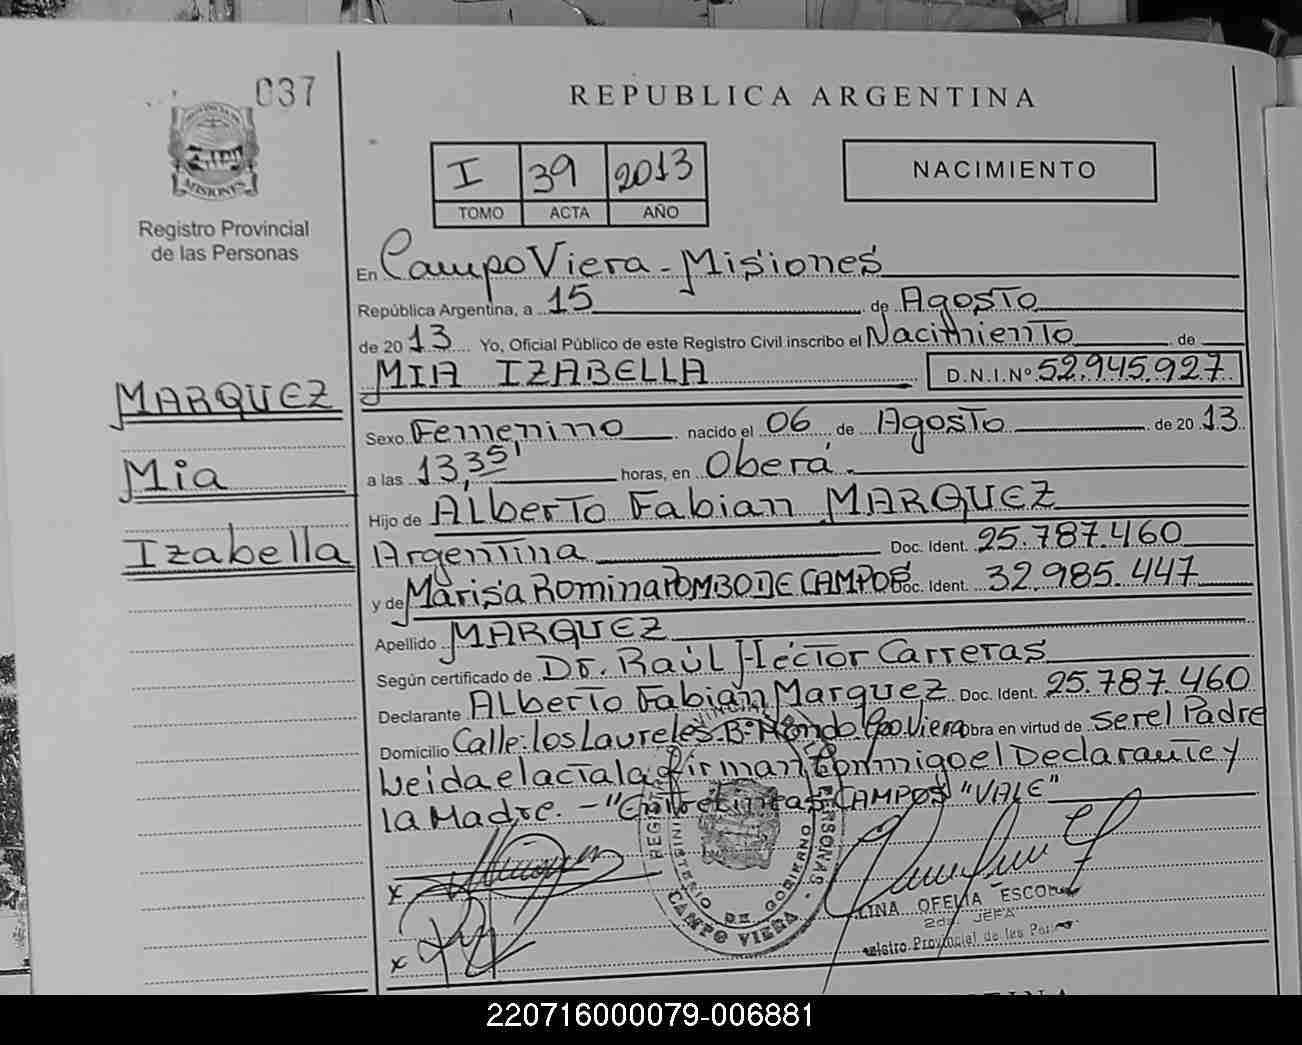 037
REPUBLICA ARGENTINA
PROVINCIA DE
MISIONES
Registro Provincial
de las Personas
I 39 2013
TOMO ACTA AÑO
NACIMIENTO
En Campo Viera - Misiones
República Argentina, a 15 de Agosto
de 2013 Yo, Oficial Público de este Registro Civil inscribo el Nacimiento de
MIA IZABELLA D.N.I.Nº 52.945.927
MARQUEZ
Mia
Izabella
Sexo Femenino nacido el 06 de Agosto de 2013
a las 13,35' horas, en Oberá.
Hijo de Alberto Fabian MARQUEZ
Argentina Doc. Ident. 25.787.460
y de Marisa Romina POMBO DE CAMPOS Doc. Ident. 32.985.447
Apellido MARQUEZ
Según certificado de Dr. Raúl Héctor Carreras
Declarante Alberto Fabián Marquez Doc. Ident. 25.787.460
Domicilio Calle: los Laureles Bº Mondo Cpo. Viera obra en virtud de ser el Padre
Leida el acta la firman conmigo el Declarante y
la Madre. - "Entrelineas CAMPOS "VALE"
x
x
MINISTERIO DE GOBIERNO
CAMPO VIERA
LINA OFELIA ESCOB
2da. JEFA
Registro Provincial de las Per
220716000079-006881